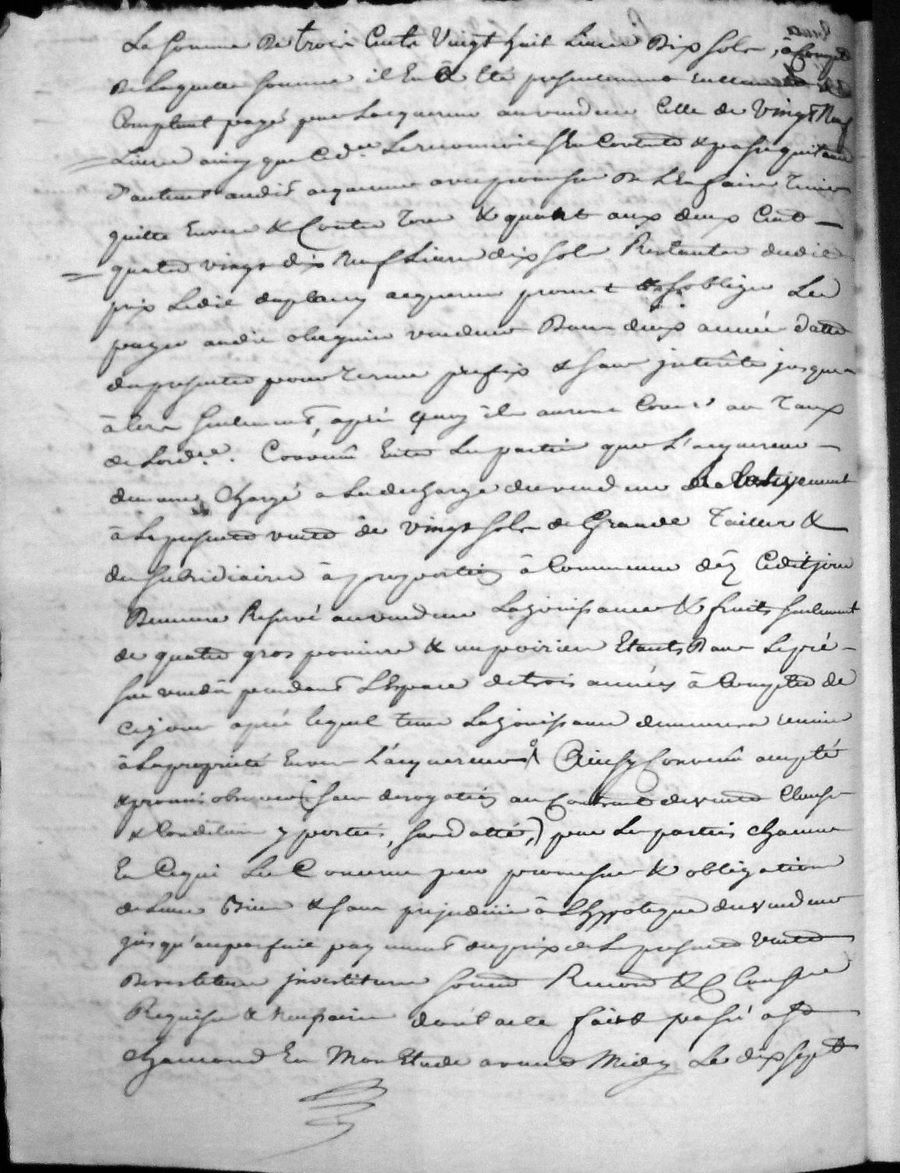 La somme De trois Cents Vingt huit Livres Dix sols, à Compte
De Laquelle somme il En a Eté presentement Reellement &
Comptant payé par Lacquereur au vendeur Celle de Vingt Neuf
Livres ainsy que led. Le reconnoit S'En Contente & passe quittance
D'autant audit acquereur avec promesse De L'En faire Tenir
quitte Envers & Contre Tous & quant aux deux Cent
quatre vingt dix Neuf Livres dix sols Restantes dudit
prix Ledit acquereur promet & s'oblige Les
payer audit vendeur Dans deux années datte
du presentes pour Terme prefix & sans interêts jusques
à lors seulement, après quoy ils auront Cours au Taux
de Lord.ce. Convenu Entre Les parties que L'acquereur
demeure Chargé a La decharge du vendeur
à La presente vente de vingt sols de Grande Taille &
du subsidiaire à proportion à Commencer dez Cedit jour
Demeure Reservé au vendeur La jouissance & fruits seulement
de quatre gros pomiers & un poirier Etants Dans Le pié-
ce vendu pendant L'Espace de trois années à Compter de
Ce jour après lequel tems La jouissance demeurera reunie
à La propriété Envers L'acquereur. Ainsy Convenu accepté
& promis observer (sans derogation au Contract de vente Clauses
& Conditions y portées, susdattés,) par Les parties chacune
En Cequi Les Concerne par promesse & obligation
de Leurs Biens & sans prejudice à L'hypoteque du vendeur
jusqu'au parfait payement du prix de La presente Vente
Devestiture investiture soumis Renond & Clauses
Requises & necessaires dont acte fait & passé a St
chamond En Mon Etude avant Midy Le dix sept